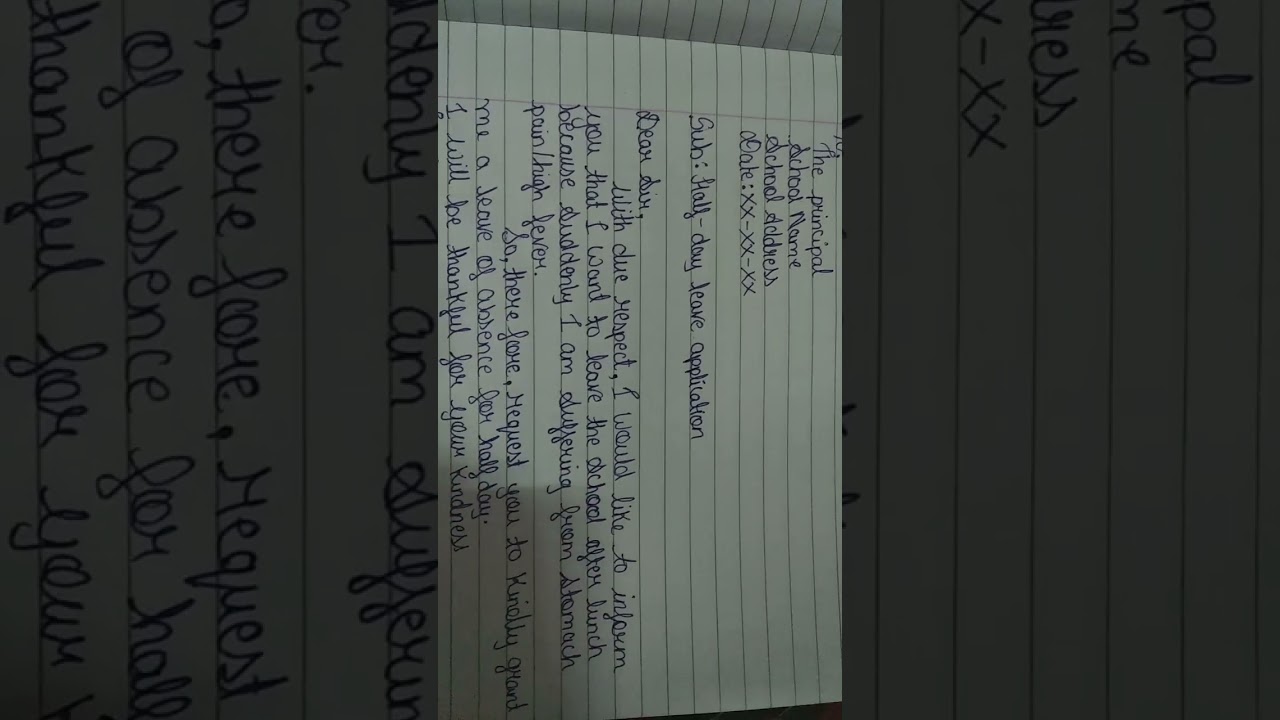 The principal
School Name
School Address
Date: XX-XX-XX
Sub: Half-day leave application
Dear Sir,
With due respect, I would like to inform
you that I want to leave the school after lunch
because suddenly I am suffering from stomach
pain/high fever.
So, there fore, request you to kindly grand
me a leave of absence for half day.
I will be thankful for your kindness